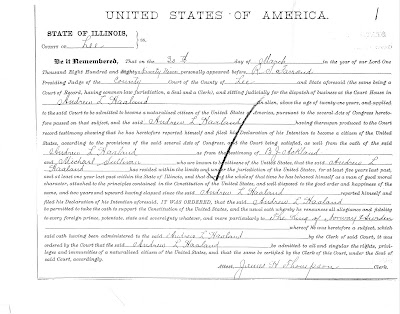 UNITED STATES OF AMERICA.
STATE OF ILLINOIS,
COUNTY OF Lee ss.
Be it Remembered, That on the 30th day of March in the year of our Lord One
Thousand Eight Hundred and Eighty personally appeared before R. S. Farrand
Presiding Judge of the County Court of the County of Lee and State aforesaid (the same being a
Court of Record, having common law jurisdiction, a Seal and a Clerk), and sitting judicially for the dispatch of business at the Court House in
Andrew L Haaland an alien, above the age of twenty-one years, and applied
to the said Court to be admitted to become a naturalized citizen of the United States of America, pursuant to the several acts of Congress hereto-
fore passed on that subject, and the said Andrew L Haaland having thereupon produced to the Court
record testimony showing that he has heretofore reported himself and filed his Declaration of his Intention to become a citizen of the United
States, according to the provisions of the said several acts of Congress, and the Court being satisfied, as well from the oath of the said
Andrew L Haaland as from the testimony of
and Michael Sullivan who are known to be citizens of the United States, that the said Andrew L
Haaland has resided within the limits and under the jurisdiction of the United States, for at least five years last past,
and at least one year last past within the State of Illinois, and that during the whole of that time he has behaved himself as a man of good moral
character, attached to the principles contained in the Constitution of the United States, and well disposed to the good order and happiness of the
same, and two years and upward having elapsed since the said Andrew L Haaland reported himself and
filed his Declaration of his Intention aforesaid, IT WAS ORDERED, that the said Andrew L Haaland
be permitted to take the oath to support the Constitution of the United States, and the usual oath whereby he renounces all allegiance and fidelity
to every foreign prince, potentate, state and sovereignty whatever, and more particularly to The King of Norway & Sweden
whereof he was heretofore a subject, which
said oath having been administered to the said Andrew L Haaland by the Clerk of said Court, it was
ordered by the Court that the said Andrew L Haaland be admitted to all and singular the rights, privi-
leges and immunities of a naturalized citizen of the United States, and that the same be certified by the Clerk of this Court, under the Seal of
said Court, accordingly.
James H Thompson Clerk.